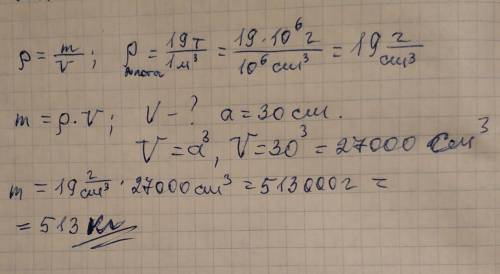 ρ = m/V ; ρ золота = 19т/1м³ = 19·10⁶г/10⁶см³ = 19 г/см³
m = ρ·V ; V – ? a = 30 см.
V = a³, V = 30³ = 27000 см³
m = 19 г/см³ · 27000 см³ = 513000 г =
= 513 кг